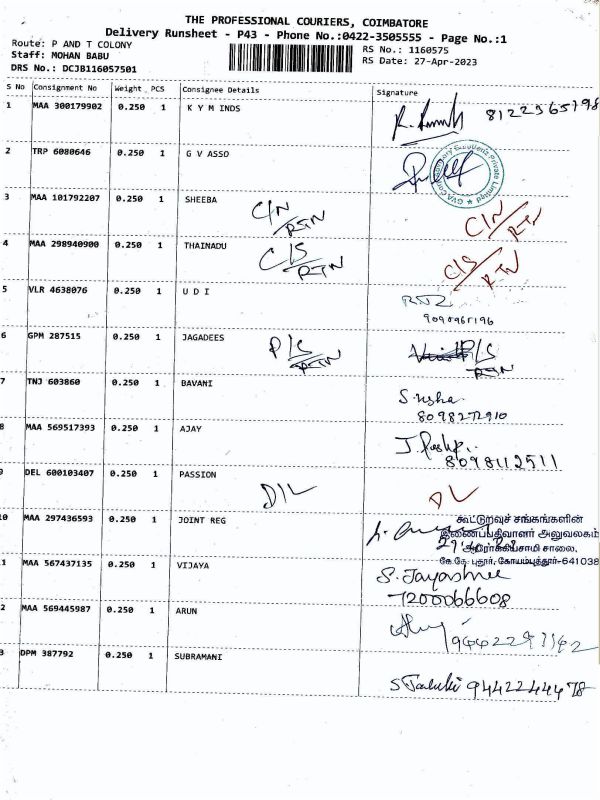 THE PROFESSIONAL COURIERS, COIMBATORE
Delivery Runsheet - P43 - Phone No.:0422-3505555 - Page No.:1
Route: P AND T COLONY
RS No.: 1160575
Staff: MOHAN BABU
RS Date: 27-Apr-2023
DRS No.: DCJB116057501
S No Consignment No Weight PCS Consignee Details Signature
1 MAA 300179902 0.250 1 K Y M INDS
2 TRP 6080646 0.250 1 G V ASSO
3 MAA 101792207 0.250 1 SHEEBA C/N RTN C/N RTN
4 MAA 298940900 0.250 1 THAINADU C/S RTN C/S RTN
5 VLR 4638076 0.250 1 U D I
6 GPM 287515 0.250 1 JAGADEES P/S RTN P/S RTN
7 TNJ 603860 0.250 1 BAVANI S.usha
8098272910
8 MAA 569517393 0.250 1 AJAY
8098112511
9 DEL 600103407 0.250 1 PASSION D/L DL
10 MAA 297436593 0.250 1 JOINT REG
கூட்டுறவுச் சங்கங்களின்
இணைப்பதிவாளர் அலுவலகம்
ஆரோக்கியசாமி சாலை,
கே.கே. புதூர், கோயம்புத்தூர்-641038
1 MAA 567437135 0.250 1 VIJAYA S. Jayashree
7200066608
2 MAA 569445987 0.250 1 ARUN
3 DPM 387792 0.250 1 SUBRAMANI
9442244478